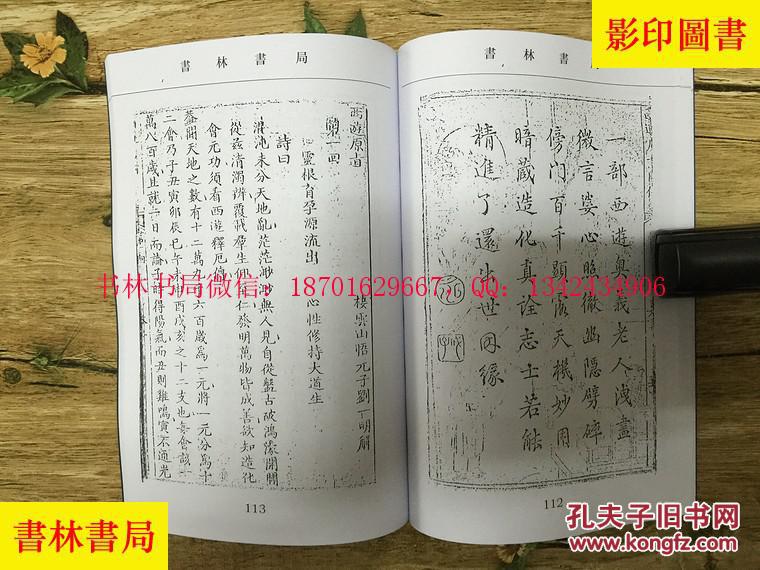 影印圖書
書林書
一部西遊奧我老人洩盡
微言婆心照徹幽隱劈碎
傍門百千顯露天機妙用
暗藏造化真詮志士若能
精進了還出世因緣
112
書林書局
西遊原旨
第一回
棲雲山悟元子劉一明解
靈根育孕源流出 心性修持大道生
詩曰
混沌未分天地亂茫茫渺渺無人見自從盤古破鴻濛開闢
從茲清濁辨覆載羣生仰至仁發明萬物皆成善欲知造化
會元功須看西遊釋厄傳
蓋聞天地之數有十二萬九千六百歲為一元將一元分為十
二會乃子丑寅卯辰巳午未申酉戌亥之十二支也每會該一
萬八百歲且就一日而論子時得陽氣而丑則雞鳴寅不通光
113
书林书局微信：18701629667，QQ：1342434906
書林書局
孔夫子旧书网
www.kongfz.com